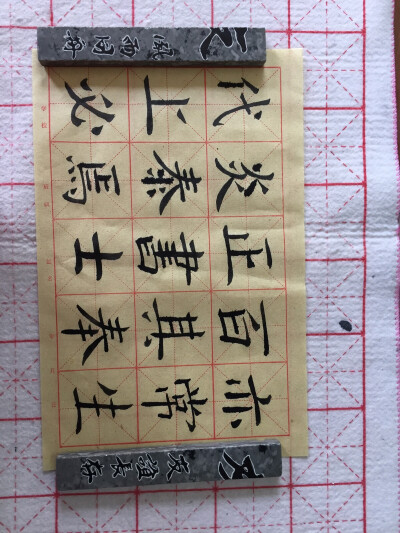 風雨同舟
代炎正百亦
上泰書其常
必焉士奉生
友誼長存